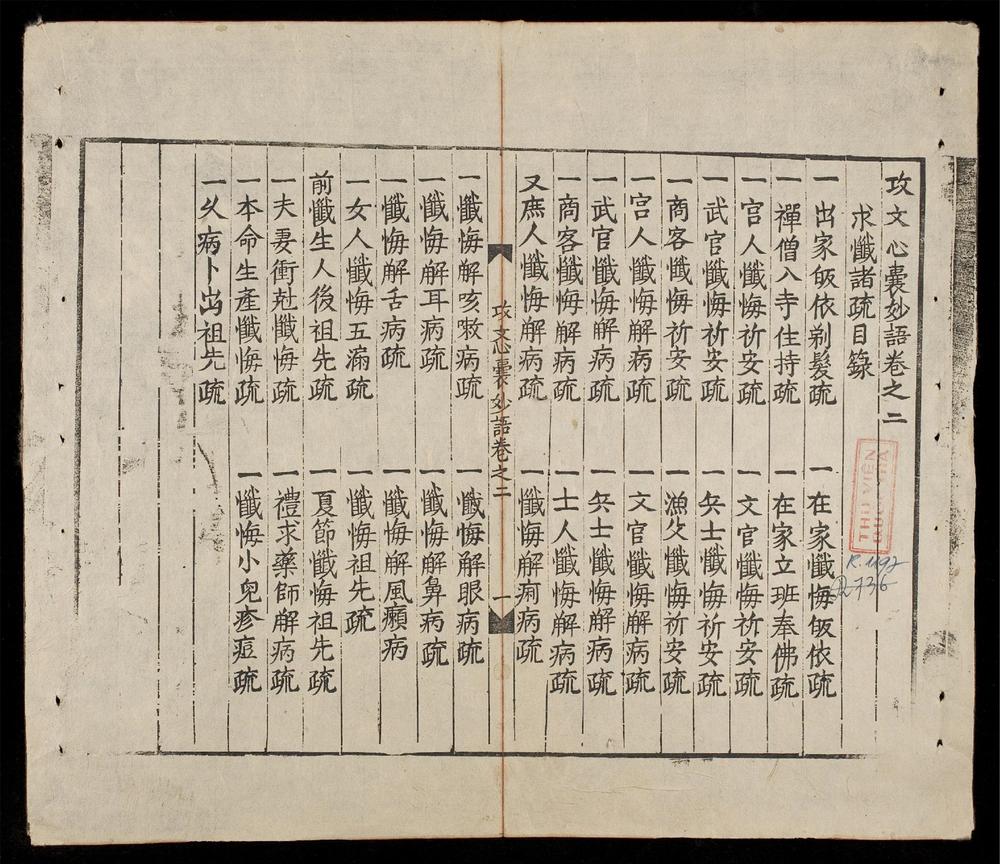 攻文心囊妙語卷之二
求懺諸疏目錄
一出家皈依剃髮疏　一在家懺悔皈依疏
一禪僧入寺住持疏　一在家立班奉佛疏
一宮人懺悔祈安疏　一文官懺悔祈安疏
一武官懺悔祈安疏　一兵士懺悔祈安疏
一商客懺悔祈安疏　一漁父懺悔祈安疏
一宮人懺悔解病疏　一文官懺悔解病疏
一武官懺悔解病疏　一兵士懺悔解病疏
一商客懺悔解病疏　一士人懺悔解病疏
又庶人懺悔解病疏　一懺悔解痢病疏
攻文心囊妙語卷之二　一
一懺悔解咳嗽病疏　一懺悔解眼病疏
一懺悔解耳病疏　一懺悔解鼻病疏
一懺悔解舌病疏　一懺悔解風癩病
一女人懺悔五漏疏　一懺悔祖先疏
前懺生人後祖先疏　一夏節懺悔祖先疏
一夫妻衝尅懺悔疏　一禮求藥師解病疏
一本命生產懺悔疏　一懺悔小兒疹痘疏
一久病卜出祖先疏
THƯ VIỆN
R.1192
R736